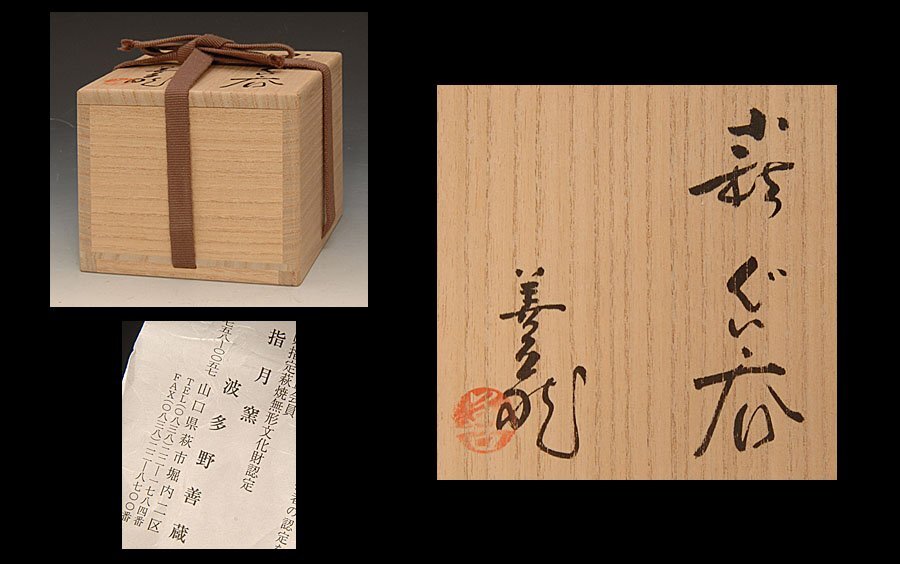 萩 ぐい呑
善蔵
指定萩焼無形文化財認定
指月窯
波多野善蔵
山口県萩市堀内二区
TEL(〇八三八)二二-一七八四番
FAX(〇八三八)二二-八七〇〇番
の認定